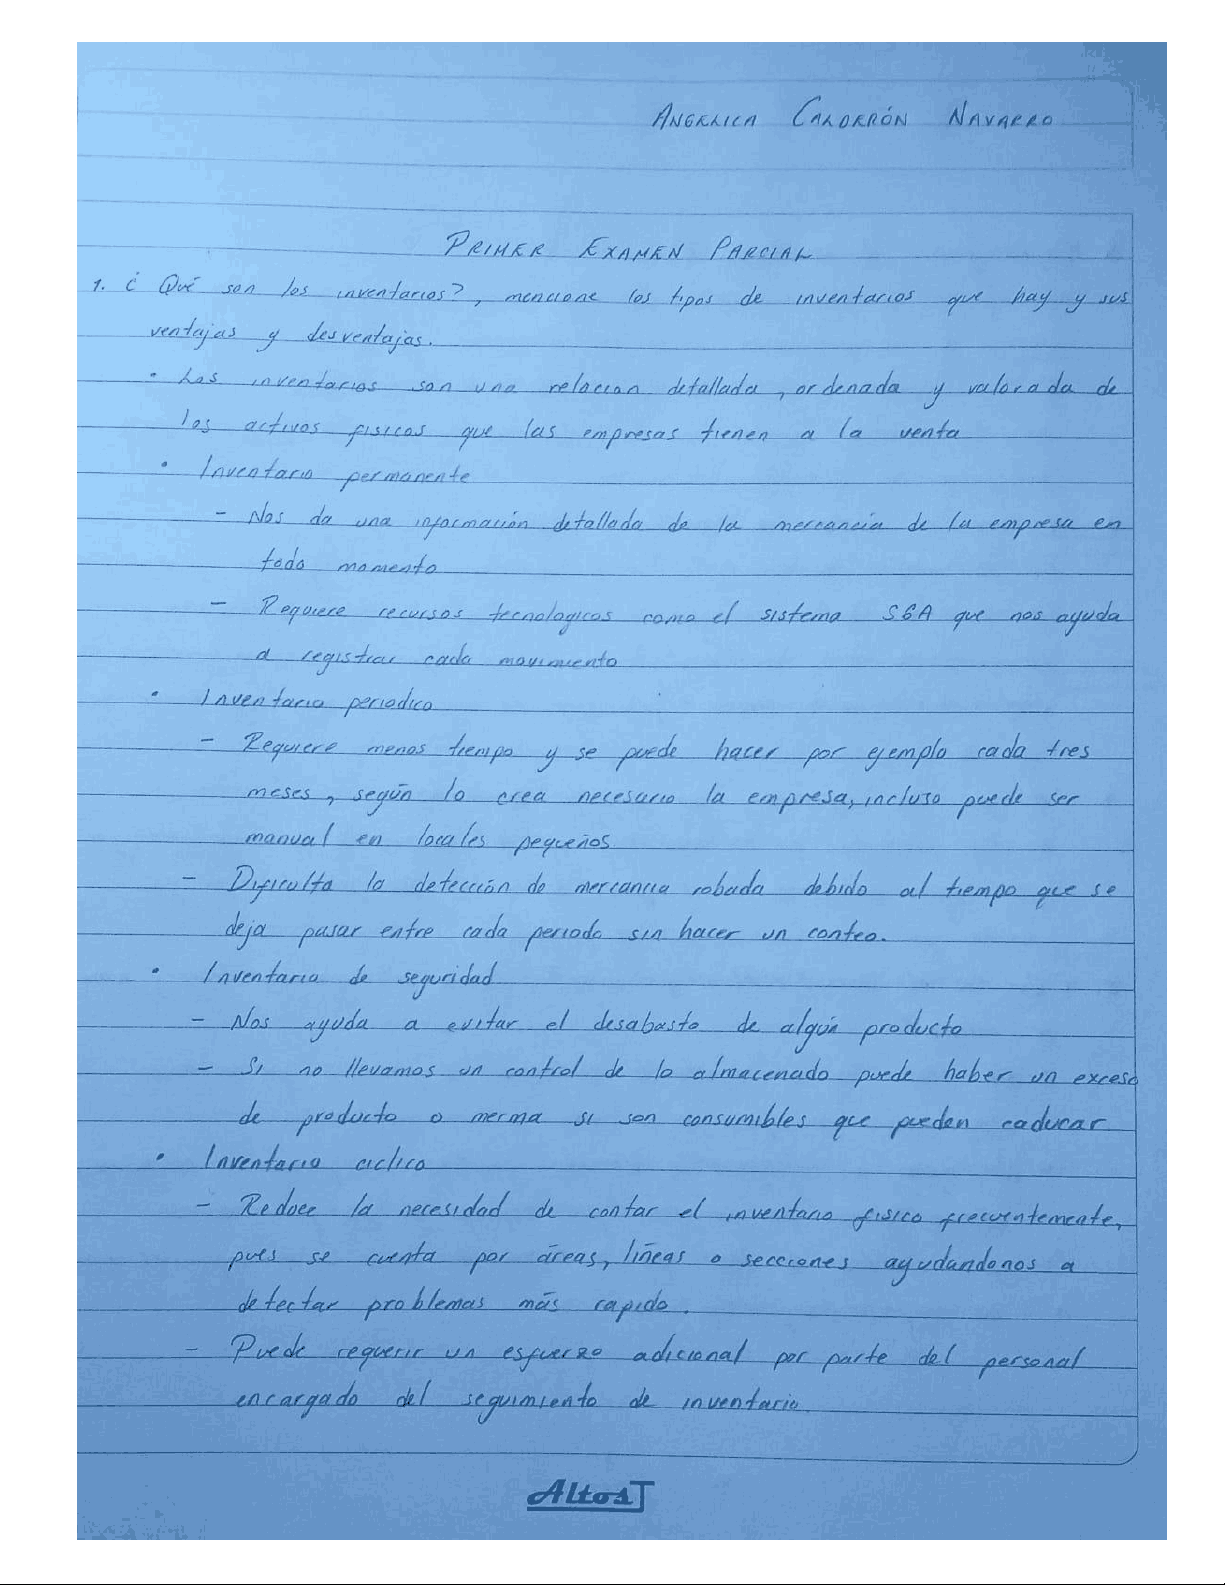 ANGELICA CALDERÓN NAVARRO
PRIMER EXAMEN PARCIAL
1. ¿Qué son los inventarios?, mencione los tipos de inventarios que hay y sus
ventajas y desventajas.
• Los inventarios son una relacion detallada, ordenada y valorada de
los activos fisicos que las empresas tienen a la venta
• Inventario permanente
- Nos da una información detallada de la mercancia de la empresa en
todo momento
- Requiere recursos tecnologicos como el sistema SGA que nos ayuda
a registrar cada movimiento
• Inventario periodico
- Requiere menos tiempo y se puede hacer por ejemplo cada tres
meses, según lo crea necesario la empresa, incluso puede ser
manual en locales pequeños
- Dificulta la detección de mercancia robada debido al tiempo que se
deja pasar entre cada periodo sin hacer un conteo.
• Inventario de seguridad
- Nos ayuda a evitar el desabasto de algún producto
- Si no llevamos un control de lo almacenado puede haber un exceso
de producto o merma si son consumibles que pueden caducar
• Inventario ciclico
- Reduce la necesidad de contar el inventario fisico frecuentemente,
pues se cuenta por áreas, líneas o secciones ayudandonos a
detectar problemas más rapido.
- Puede requerir un esfuerzo adicional por parte del personal
encargado del seguimiento de inventario
Altos